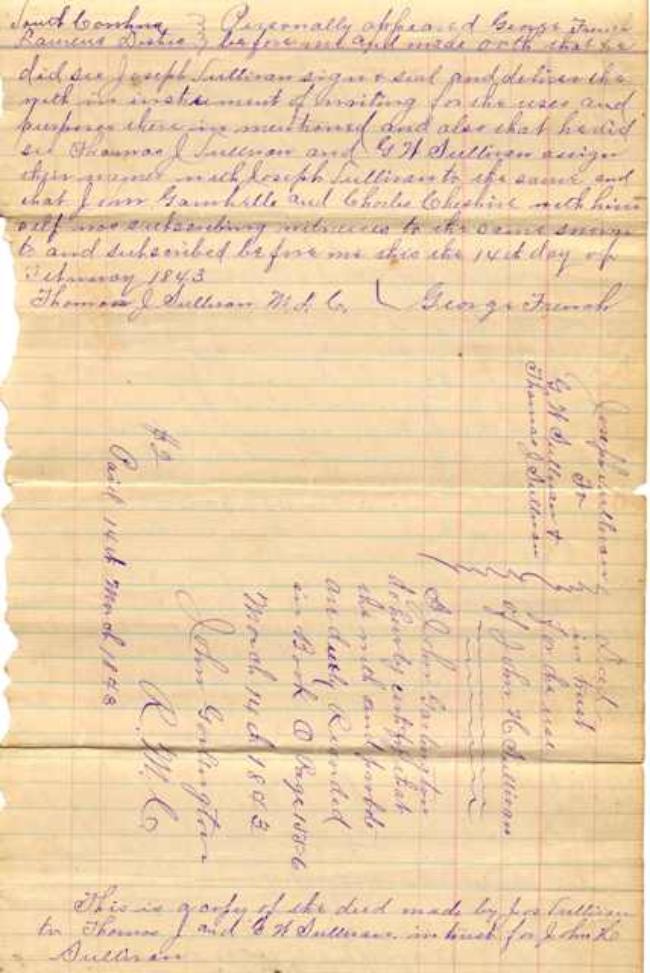 South Carolina } Personally appeared George French
Laurens District } before me and made oath that he
did see Joseph Sullivan sign & seal and deliver the
with in instrument of writing for the uses and
purposes there in mentioned and also that he did
see Thomas J Sullivan and G W Sullivan assign
their names with Joseph Sullivan to the same and
that John Gambrelle and Charles Cheshire with him
self was subscribing witnesses to the same sworn
to and subscribed before me this the 14th day of
February 1843
Thomas J. Sullivan M. L. C. George French
Joseph Sullivan } Deed
To } in trust
G. W Sullivan & } for the use
Thomas J Sullivan } of John H Sullivan
I John Garlington
do hereby certify that
the with and probate
are duly Recorded
in Book Page
March 14th 1843
John Garlington
R. M. C
$2
Paid 14th March 1843
This is a copy of the deed made by Jos Sullivan
to Thomas J and G W Sullivan in trust for John H
Sullivan